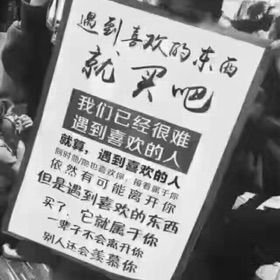 遇到喜欢的东西
就买吧
我们已经很难
遇到喜欢的人
就算，遇到喜欢的人
同时她/他也喜欢你，接着属于你
依然有可能离开你
但是遇到喜欢的东西
买了，它就属于你
一辈子不会离开你
别人还会羡慕你